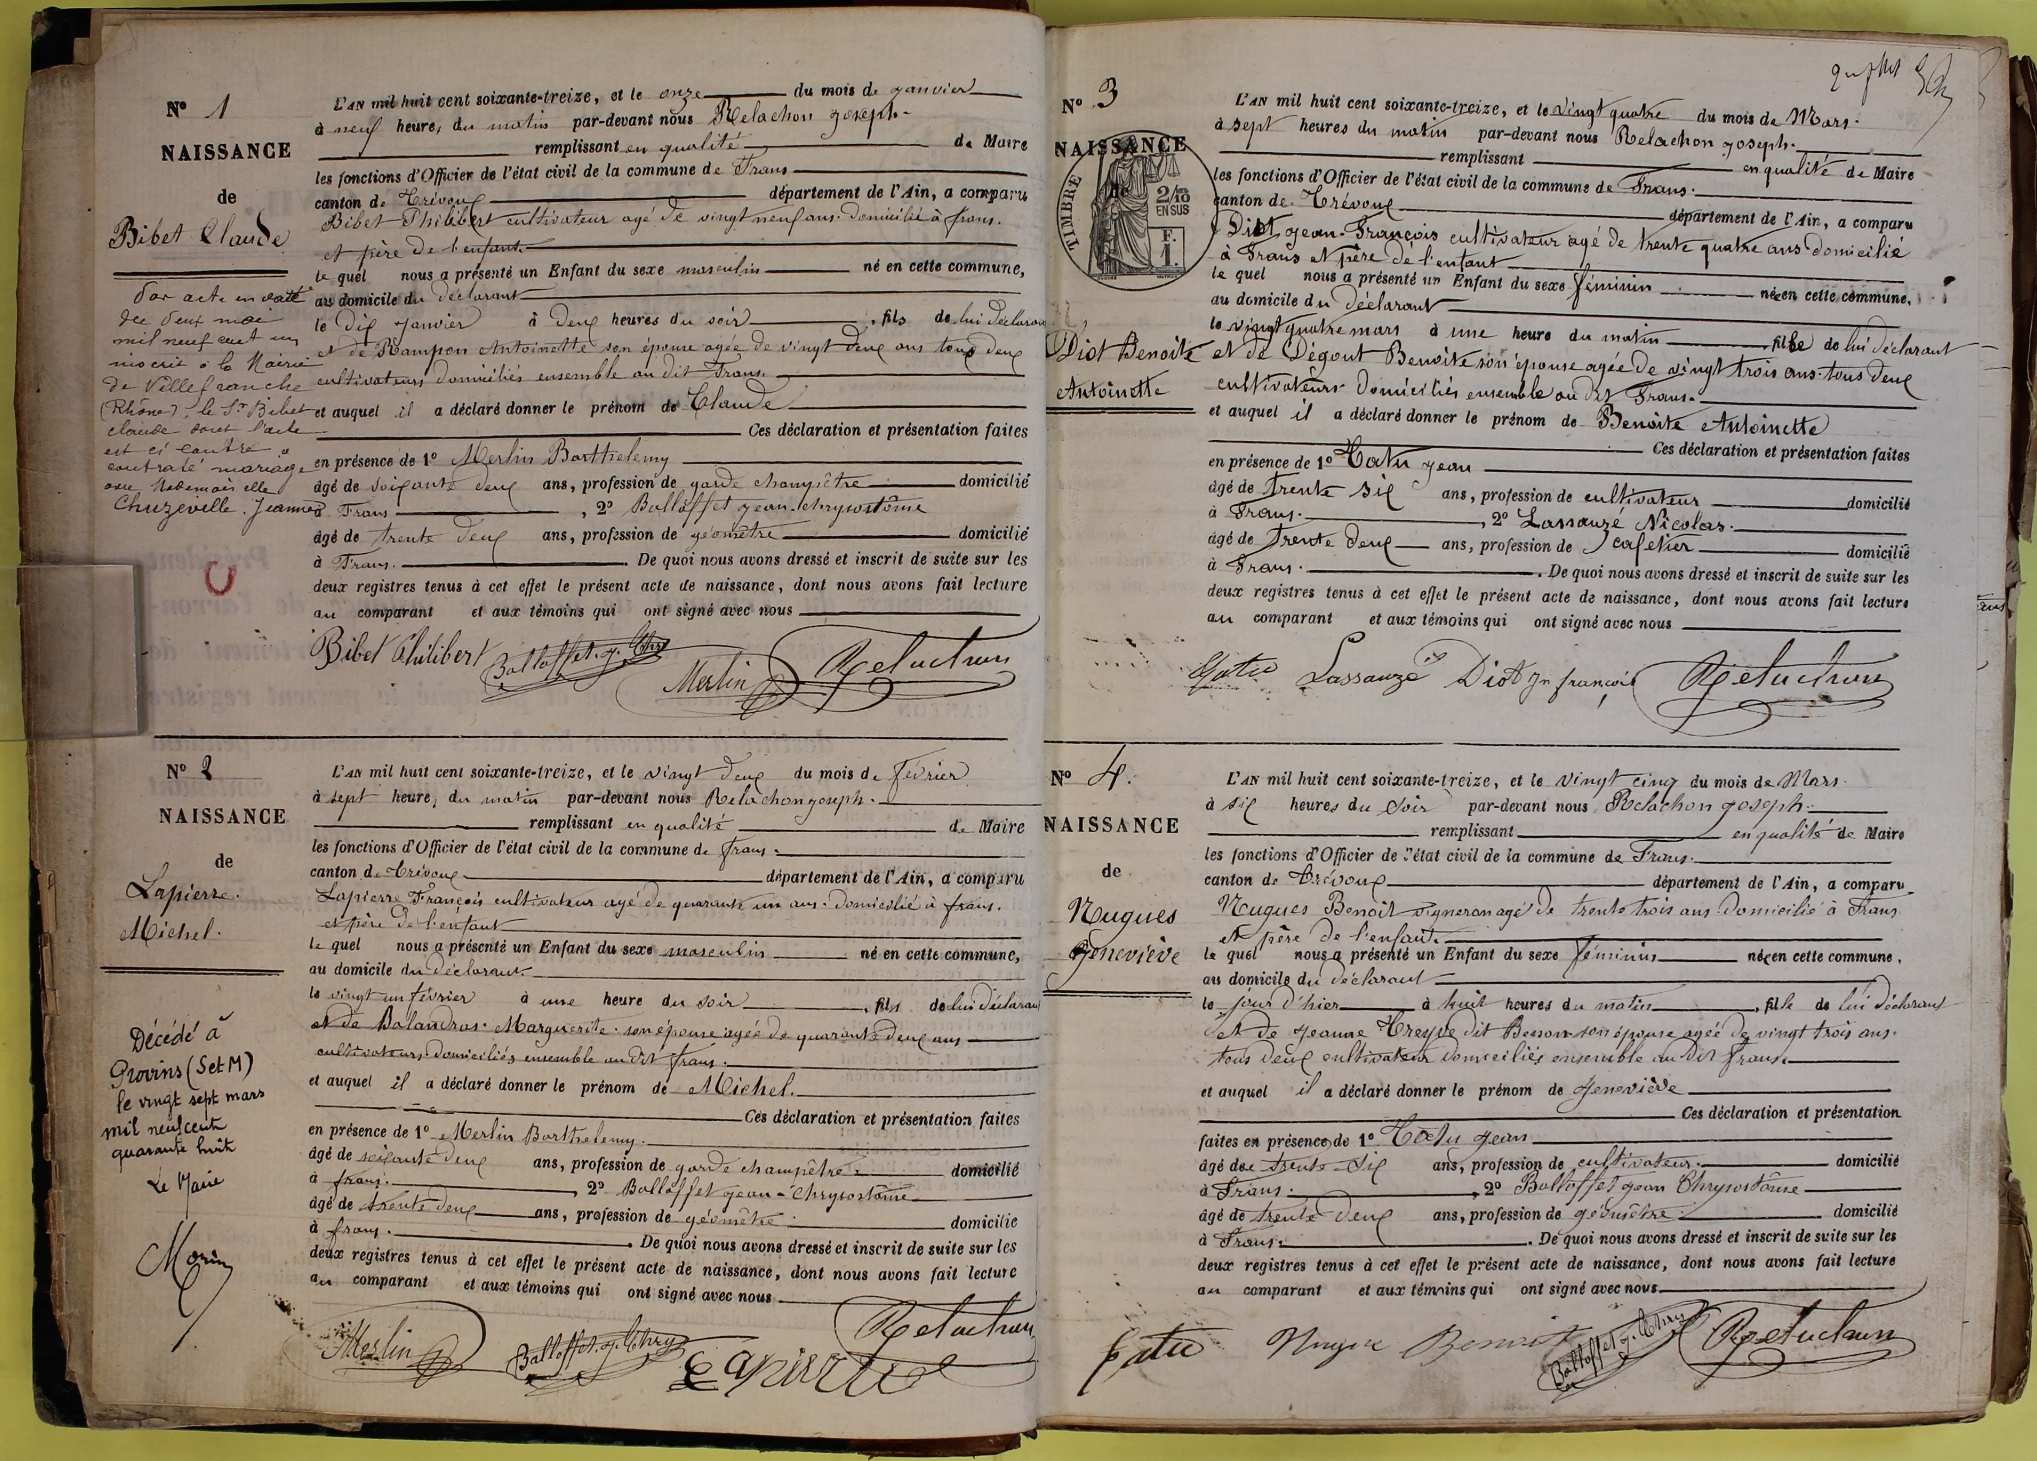 N° 1
NAISSANCE
de
Bibet Claude
Par acte en date
du deux mai
mil neuf cent un
inscrit à la Mairie
de Villefranche
(Rhône), le Sr Bibet
Claude dont l'acte
est ci contre a
contracté mariage
avec Mademoiselle
Chuzeville Jeanne
L'AN mil huit cent soixante-treize, et le onze du mois de janvier
à neuf heure, du matin par-devant nous Relachon Joseph
remplissant en qualité de Maire
les fonctions d'Officier de l'état civil de la commune de Frans
canton de Trévoux département de l'Ain, a comparu
Bibet Philibert cultivateur agé de vingt neuf ans domicilié à frans.
et père de l'enfant
le quel nous a présenté un Enfant du sexe masculin né en cette commune,
au domicile du déclarant
le dix janvier à deux heures du soir, fils de lui déclarant
et de Rampon Antoinette son épouse agée de vingt deux ans tous deux
cultivateurs domiciliés ensemble au dit Frans.
et auquel il a déclaré donner le prénom de Claude
Ces déclaration et présentation faites
en présence de 1° Merlin Barthelemy
âgé de soixante deux ans, profession de garde champêtre domicilié
à Frans, 2° Balloffet Jean-Chrysostôme
âgé de trente deux ans, profession de géomètre domicilié
à Frans. De quoi nous avons dressé et inscrit de suite sur les
deux registres tenus à cet effet le présent acte de naissance, dont nous avons fait lecture
au comparant et aux témoins qui ont signé avec nous
Bibet Philibert Balloffet. j. Chry Merlin Relachon
N° 2
NAISSANCE
de
Lapierre.
Michel.
Décédé à
Provins (S et M)
le vingt sept mars
mil neuf cent
quarante huit
Le Maire
Morin
L'AN mil huit cent soixante-treize, et le vingt deux du mois de février
à sept heure, du matin par-devant nous Relachon Joseph.
remplissant en qualité de Maire
les fonctions d'Officier de l'état civil de la commune de frans.
canton de Trévoux département de l'Ain, a comparu
Lapierre François cultivateur agé de quarante un ans. domicilié à frans.
et père de l'enfant
le quel nous a présenté un Enfant du sexe masculin né en cette commune,
au domicile du déclarant
le vingt un février à une heure du soir, fils de lui déclarant
et de Balandras Marguerite son épouse agée de quarante deux ans
cultivateurs domiciliés ensemble au dit frans.
et auquel il a déclaré donner le prénom de Michel.
Ces déclaration et présentation faites
en présence de 1° Merlin Barthelemy.
âgé de soixante deux ans, profession de garde champêtre domicilié
à frans., 2° Balloffet Jean-Chrysostôme
âgé de trente deux ans, profession de géomètre domicilié
à frans. De quoi nous avons dressé et inscrit de suite sur les
deux registres tenus à cet effet le présent acte de naissance, dont nous avons fait lecture
au comparant et aux témoins qui ont signé avec nous
Merlin Balloffet. j. Chry Lapierre Relachon
N° 3
NAISSANCE
de
TIMBRE
2/10
EN SUS
F.
1.
Diot Benoite
Antoinette
L'AN mil huit cent soixante-treize, et le vingt quatre du mois de Mars.
à sept heures du matin par-devant nous Relachon Joseph.
remplissant en qualité de Maire
les fonctions d'Officier de l'état civil de la commune de Frans.
canton de Trévoux département de l'Ain, a comparu
Diot Jean-François cultivateur agé de trente quatre ans domicilié
à Frans et père de l'enfant
le quel nous a présenté un Enfant du sexe féminin née en cette commune,
au domicile du déclarant
le vingt quatre mars à une heure du matin, fille de lui déclarant
et de Dégout Benoite son épouse agée de vingt trois ans. tous deux
cultivateurs domiciliés ensemble au dit Frans.
et auquel il a déclaré donner le prénom de Benoite Antoinette
Ces déclaration et présentation faites
en présence de 1° Tatu Jean
âgé de trente six ans, profession de cultivateur domicilié
à Frans., 2° Lassauzé Nicolas.
âgé de trente deux ans, profession de cafetier domicilié
à Frans. De quoi nous avons dressé et inscrit de suite sur les
deux registres tenus à cet effet le présent acte de naissance, dont nous avons fait lecture
au comparant et aux témoins qui ont signé avec nous
tatu Lassauzé Diot jn françois Relachon
N° 4.
NAISSANCE
de
Nugues
Geneviève
L'AN mil huit cent soixante-treize, et le vingt cinq du mois de Mars.
à six heures du soir par-devant nous Relachon Joseph.
remplissant en qualité de Maire
les fonctions d'Officier de l'état civil de la commune de Frans.
canton de Trévoux département de l'Ain, a comparu
Nugues Benoit vigneron agé de trente trois ans domicilié à Frans
et père de l'enfant.
le quel nous a présenté un Enfant du sexe féminin née en cette commune,
au domicile du déclarant
le jour d'hier à huit heures du matin, fille de lui déclarant
et de Jeanne Treyve dit Besson son épouse agée de vingt trois ans.
tous deux cultivateurs domiciliés ensemble au dit Frans.
et auquel il a déclaré donner le prénom de Geneviève
Ces déclaration et présentation
faites en présence de 1° Tatu Jean
âgé de trente-six ans, profession de cultivateur. domicilié
à Frans., 2° Balloffet Jean Chrysostôme
âgé de trente deux ans, profession de géomètre. domicilié
à Frans. De quoi nous avons dressé et inscrit de suite sur les
deux registres tenus à cet effet le présent acte de naissance, dont nous avons fait lecture
au comparant et aux témoins qui ont signé avec nous
tatu Nugue Benoit Balloffet j. Chry Relachon